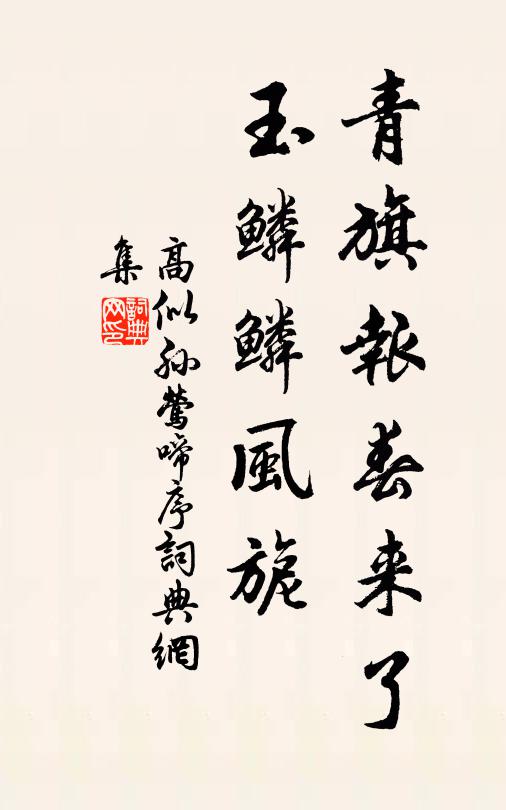 青旗報春来了
玉鱗鱗風旎
高似孫鶯啼序詞典網
集
詞典
网印